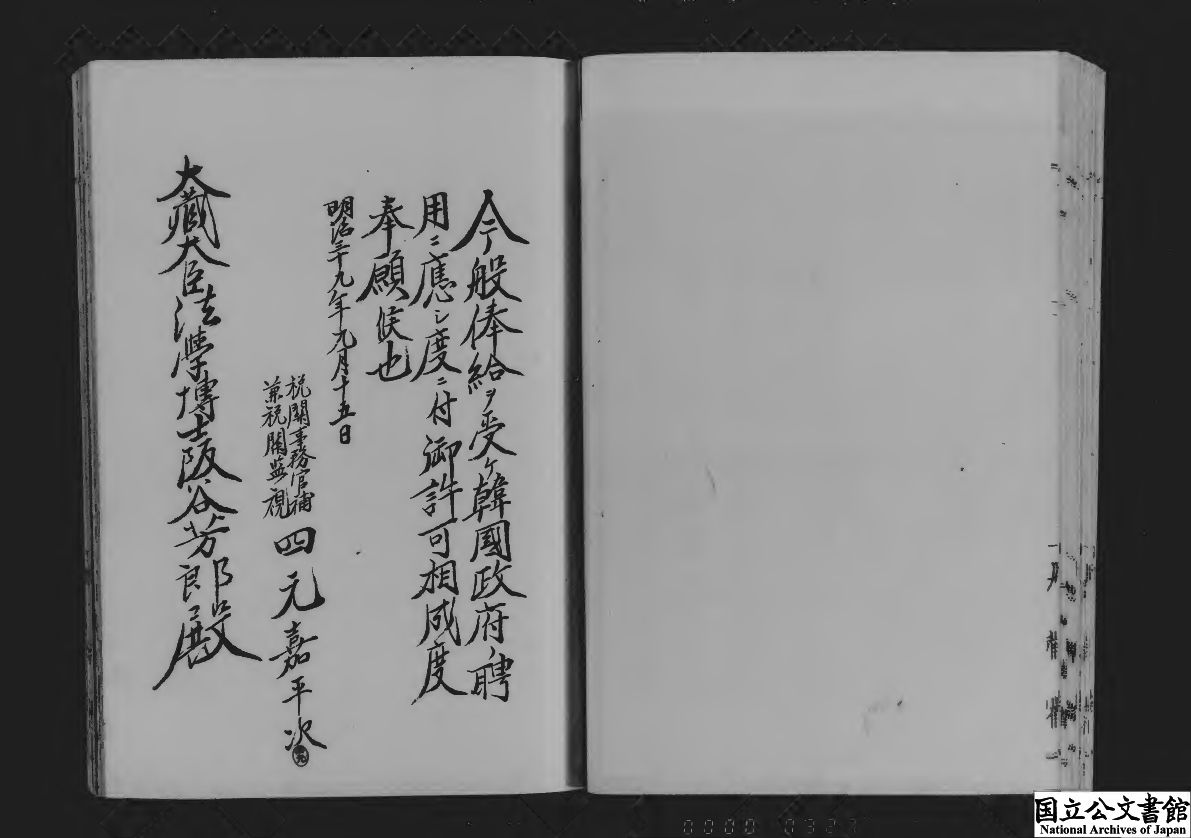 今般俸給ヲ受ケ韓國政府ノ聘
用ニ應シ度ニ付御許可相成度
奉願候也
明治三十九年九月十五日
税關事務官補
兼税關監視
四元嘉平次
大藏大臣法學博士阪谷芳郎殿
国立公文書館
National Archives of Japan